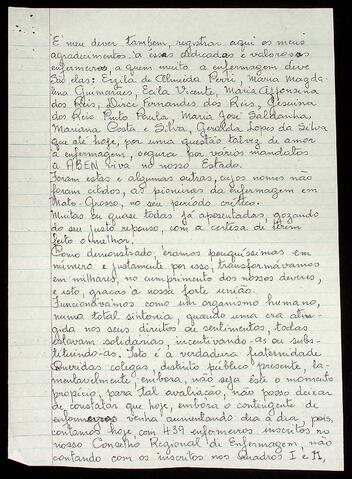 É meu dever também, registrar aqui os meus
agradecimentos a essas dedicadas e valorosas
enfermeiras a quem muito a enfermagem deve
São elas: Erzila de Almeida Perri, Maria Magda-
lena Guimarães, Ecila Vicente, Maria Affonsina
dos Reis, Dirce Fernandes dos Reis, Jesuina
dos Reis Pinto Paula, Maria José Saldanha,
Mariana Costa e Silva, Geralda Lopes da Silva
que até hoje, por uma questão talvez de amor
à enfermagem, segura por vários mandatos
a ABEN viva no nosso Estado.
Foram estas e algumas outras, cujos nomes não
foram citados, as pioneiras da enfermagem em
Mato-Grosso, no seu período crítico.
Muitas ou quase todas já aposentadas, gozando
do seu justo repouso, com a certesa de terem
feito o melhor.
Como demonstrado, éramos pouquíssimas em
número e justamente por isso, transformávamos
em milhares, no cumprimento dos nossos deveres,
e isto, graças à nossa forte união.
Funcionávamos como um organismo humano,
numa total sintonia, quando uma era atin-
gida nos seus direitos ou sentimentos, todas
estavam solidárias, incentivando-as ou subs-
tituindo-as. Isto é a verdadeira fraternidade
Queridas colegas, distinto público presente, la-
mentavelmente, embora, não seja este o momento
propício, para tal avaliação, não posso deixar
de constatar que hoje, embora o contingente de
enfermeiros venha aumentando dia a dia pois,
contamos hoje, com 439 enfermeiros inscritos no
nosso Conselho Regional de Enfermagem, não
contando com os inscritos nos Quadros I e II,